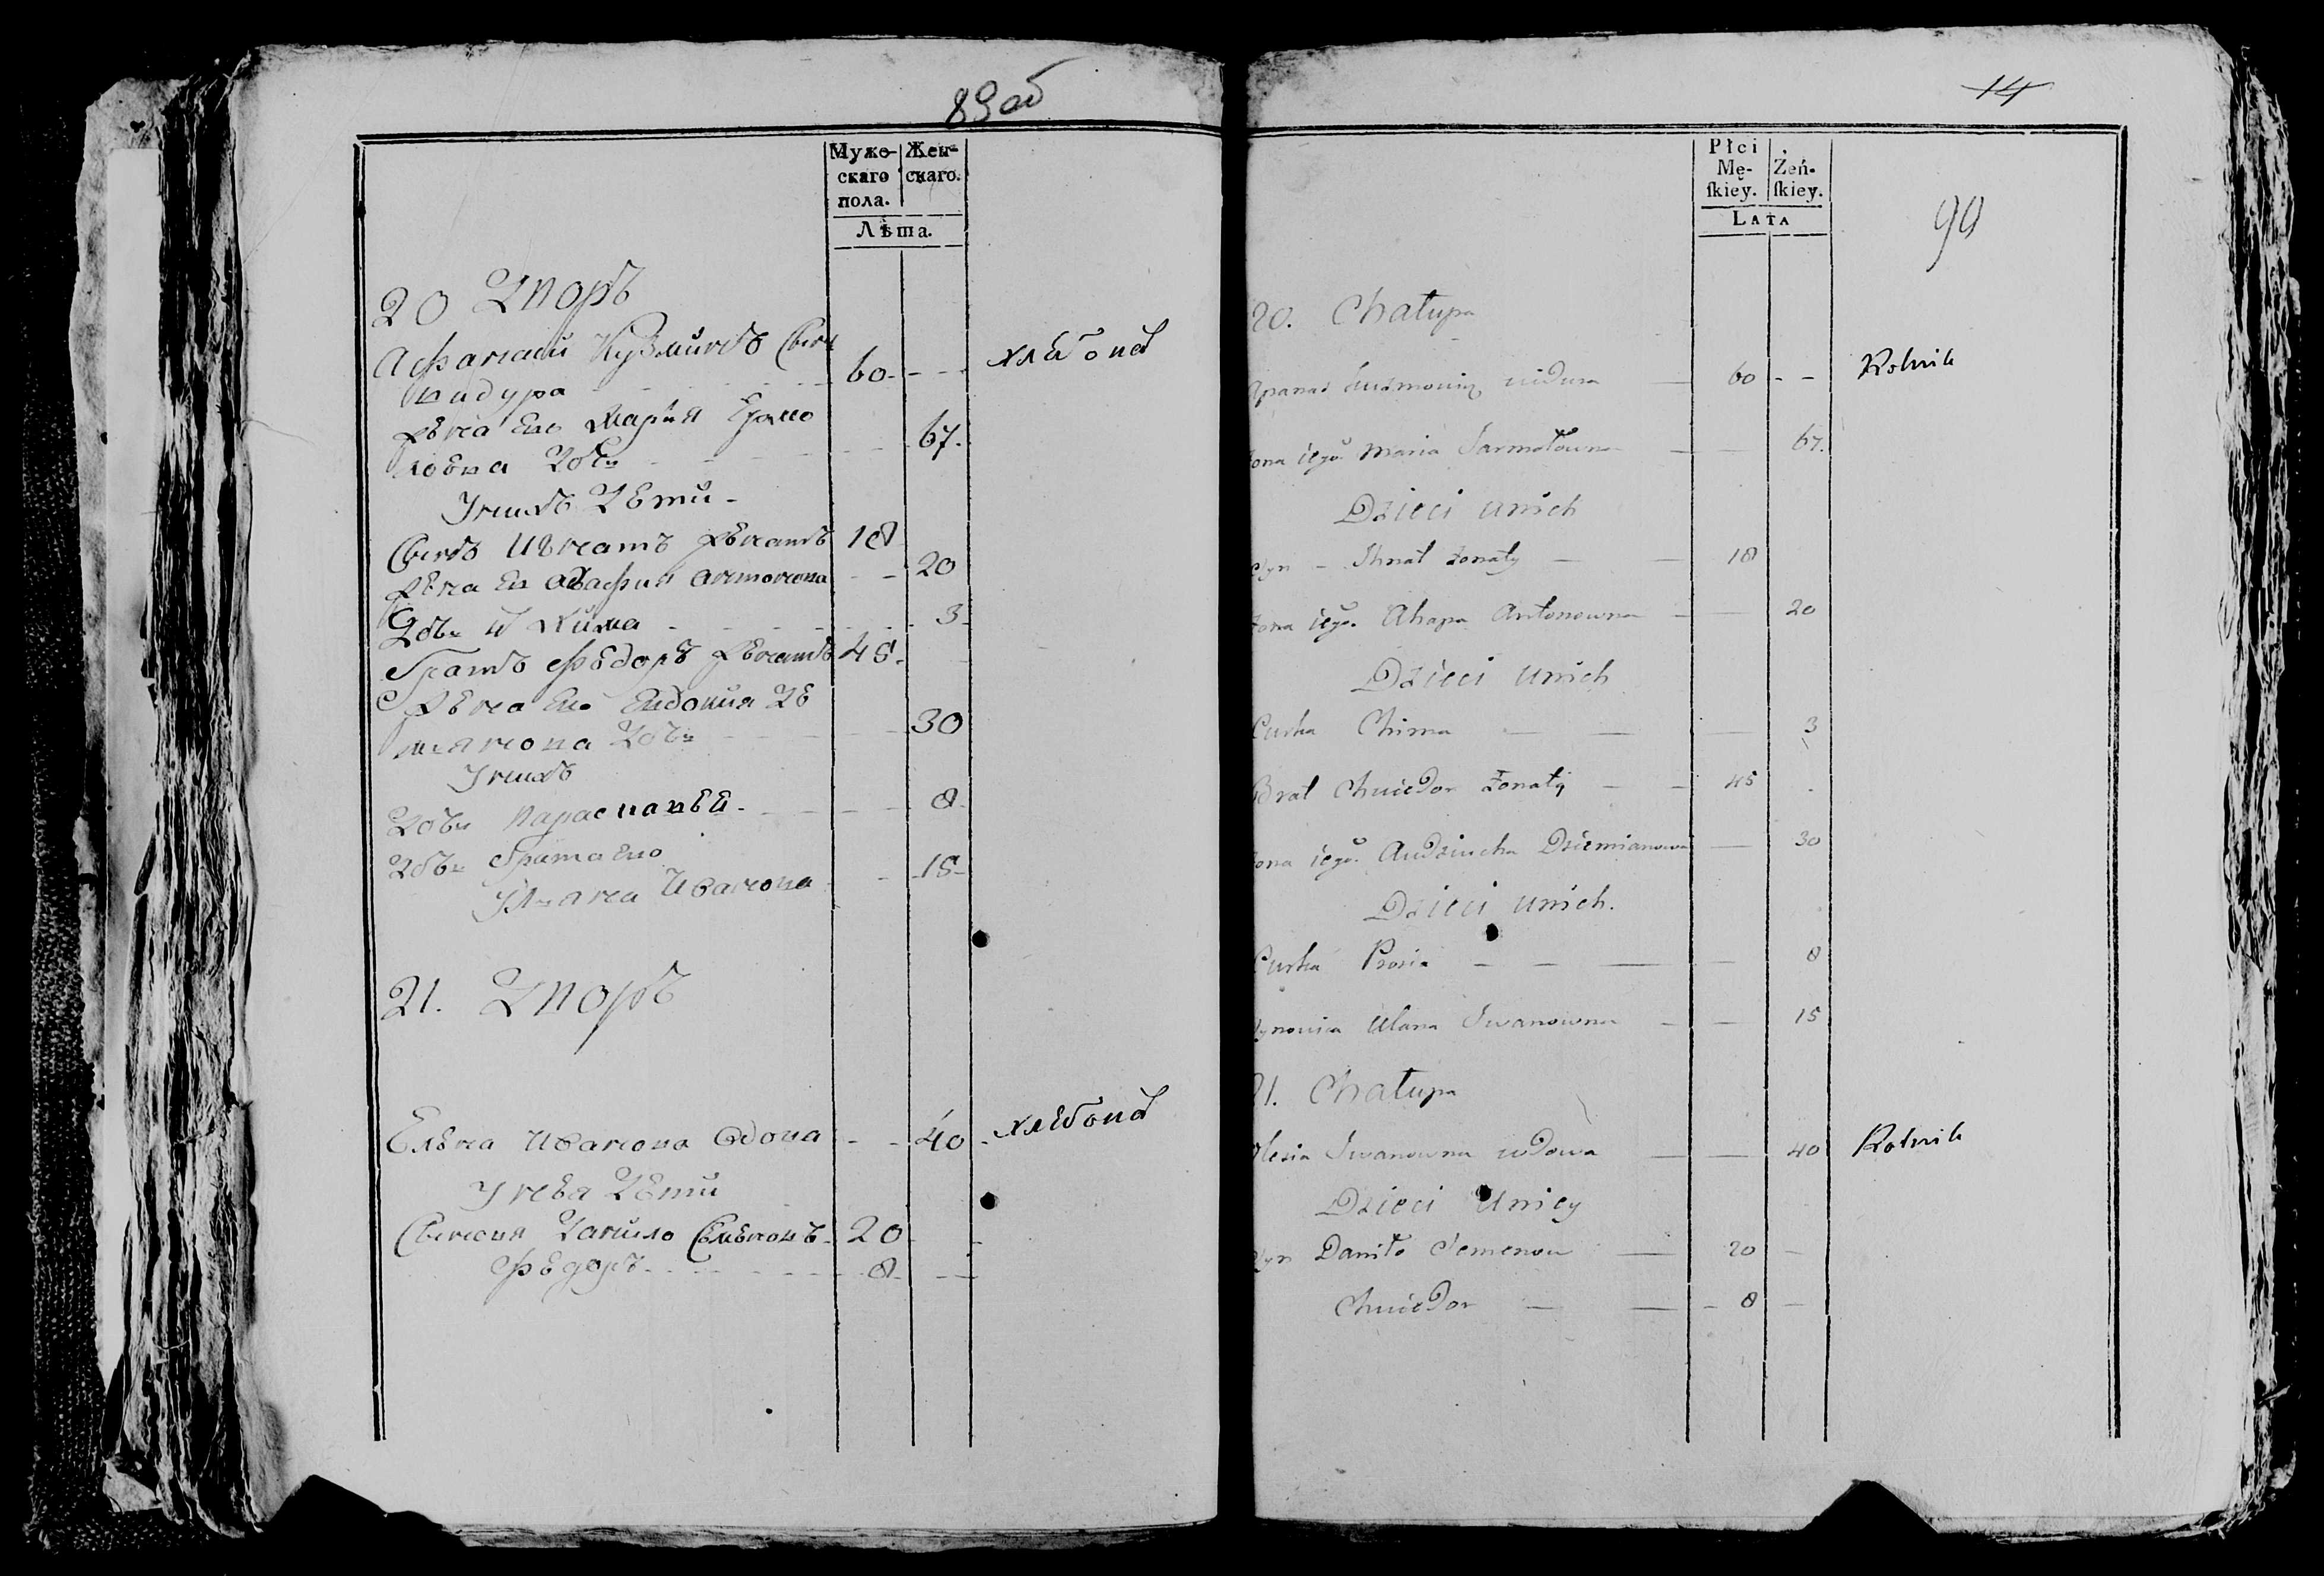 89 об
Муже-
скаго
пола.
Жен-
скаго.
Лѣта.
20 Дворъ
Афанасий Кузминъ Сынъ
60
хлебопа
жена Его Мария Ермо
67.
ловна
У нихъ Дети
Сынъ Игнатъ женатъ 18
жена Ег Агафия Антонова 20
Дочь Хима 3
Братъ Федоръ женатъ 45
жена Его Евдокия Де
мянова Дочь 30
У нихъ
Дочь Парасковея 8
Дочь брата Его
Уляна Иванова 15
21. Дворъ
Елена Иванова вдова 40 хлебопа
У нея Дети
Сыновя Данило Семеновъ 20
Федоръ 8
14
Płci
Mę-
ſkiey.
Żeń-
ſkiey.
LATA
90
20. Chałupa
60 Rolnik
Żona iego Maria Jarmołowna 67.
Dzieci unich
Syn Ihnat żonaty 18
Żona iego. Ahapa Antonowna 20
Dzieci unich
Curka Chima 3
Brat Chwiedor Żonaty 45
Żona iego. Audziucha Dziemianowna 30
Dzieci unich.
Curka Prosia 8
Synowica Ulana Iwanowna 15
21. Chałupa
Olesia Iwanowna wdowa 40 Rolnik
Dzieci Uniey
Syn Daniło Semenow 20
Chwiedor 8